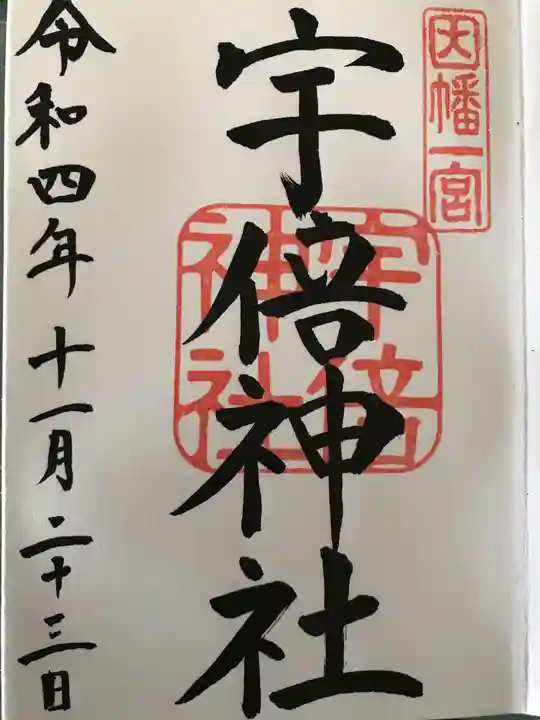 因幡一宮
宇倍神社
宇倍
神社
令和四年十一月二十三日